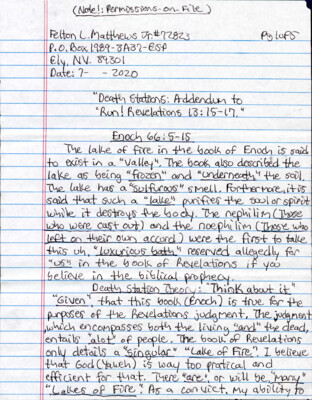 (Note!: Permissions on File)
Felton L. Matthews Jr. #72823 Pg 1 of 5
P.O. Box 1989-3A37-ESP
Ely, NV. 89301
Date: 7- -2020
"Death Stations: Addendum to
"Run! Revelations 13:15-17."
Enoch 66:5-15
The lake of fire in the book of Enoch is said
to exist in a "Valley". The book also described the
lake as being "frozen" and "underneath" the soil.
The lake has a "sulfurous" smell. Forthermore, it is
said that such a "lake" purifies the soul or spirit
while it destroys the body. The nephilim (Those
who were cast out) and the noephilim (Those who
left on their own accord) were the first to take
this uh, "luxurious bath," reserved allegedly for
"us" in the book of Revelations if you
believe in the biblical prophecy.
Death Station Theory: "Think about it"
"Given", that this book (Enoch) is true for the
purposes of the Revelations judgment. The judgment
which encompasses both the living "and" the dead,
entails "alot" of people. The book of Revelations
only details a "singular" "Lake of Fire". I believe
that God (Yaweh) is way too pratical and
efficient for that. There "are", or will be, "Many"
"Lakes of Fire". As a convict, my ability to